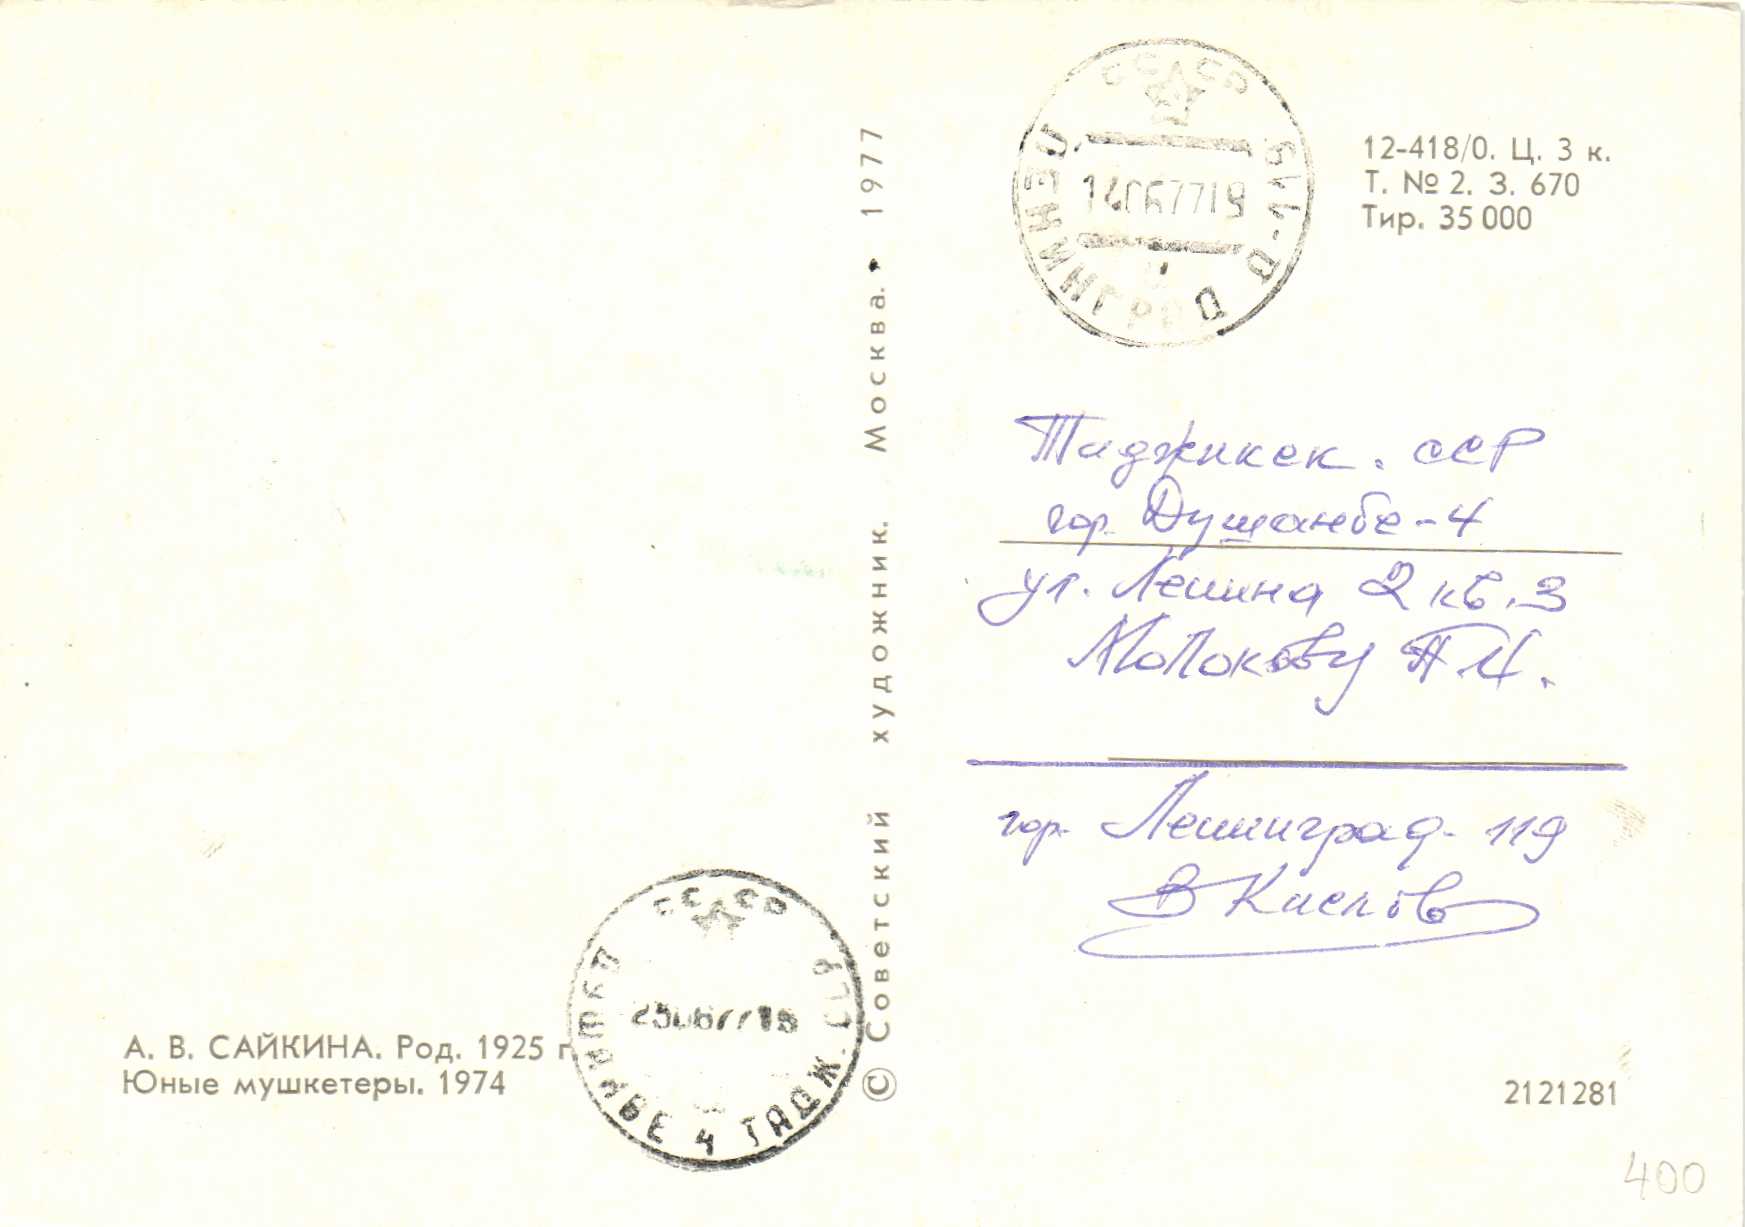 СССР
ЛЕНИНГРАД Д-119
14067719
12-418/0. Ц. 3 к.
Т. № 2. З. 670
Тир. 35 000
Таджикск. ССР
гор. Душанбе-4
ул. Ленина 2 кв. 3
Молокову П.И.
гор. Ленинград-119
В Кислов
© Советский художник. Москва. • 1977
СССР
ДУШАНБЕ 4 ТАДЖ.
А. В. САЙКИНА. Род. 1925 г.
Юные мушкетеры. 1974
2121281
400